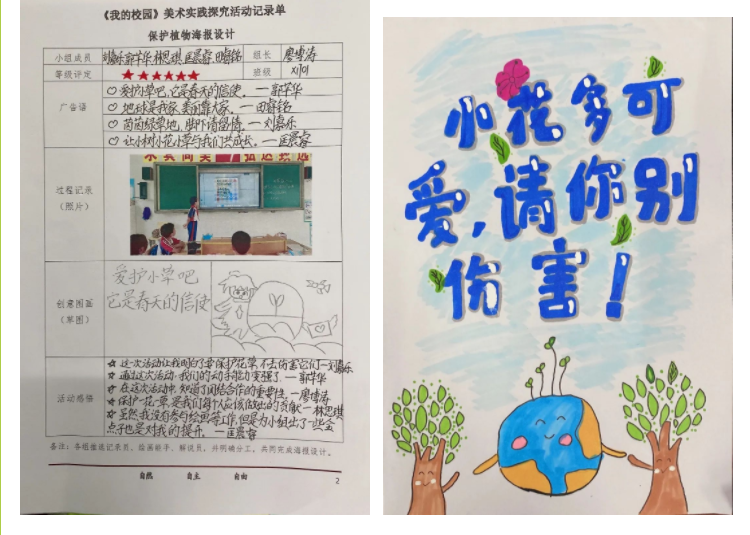 《我的校园》美术实践探究活动记录单
保护植物海报设计
小组成员 组长 廖雪涛
等级评定 ★★★★★★ 班级
广告语
爱护小草吧,它是春天的信使。—郭芊华
地球是我家,美丽靠大家。—田睿铭
茵茵绿草地,脚下请留情。—刘嘉乐
让小树小花小草与我们共成长。—匡晨睿
过程记录
(照片)
创意图画
(草图)
爱护小草吧
它是春天的信使
活动感悟
这一次活动让我明白了要保护花草,不去伤害它们—刘嘉乐
通过这次活动,我们的动手能力变强了。—郭芊华
在这次活动中,知道了团结合作的重要性。—廖雪涛
保护一花一草,是我们每个人应该做出的贡献—林思琪
虽然我没有参与绘画等工作,但是为小组出了一些金
点子也是对我的提升。—匡晨睿
备注:各组推选记录员、绘画能手、解说员,并明确分工,共同完成海报设计。
自然 自主 自由
2
小花多可
爱,请你别
伤害!